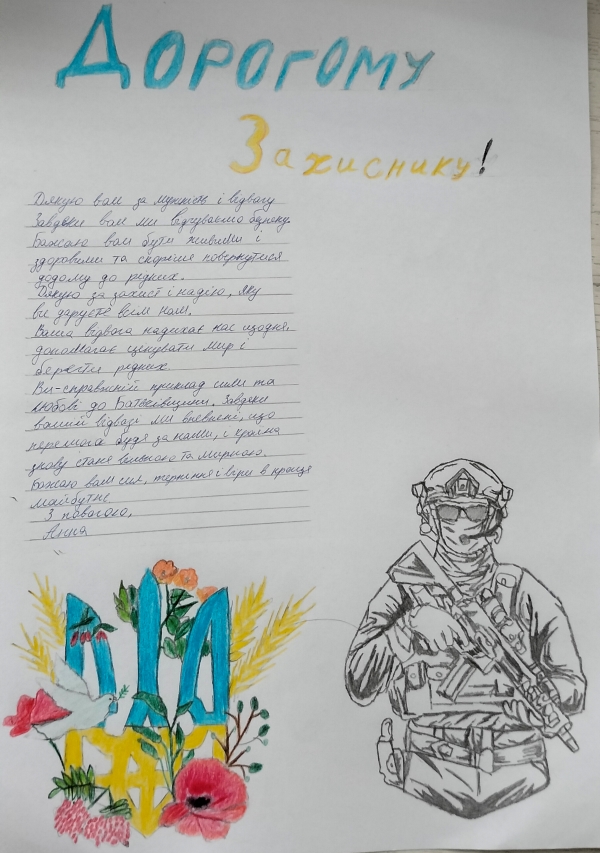 Дорогому
Захиснику!
Дякую вам за мужність і відвагу
Завдяки вам ми відчуваємо безпеку.
Бажаю вам бути живими і
здоровими та скоріше повернутися
додому до рідних.
Дякую за захист і надію, яку
ви даруєте всім нам.
Ваша відвага надихає нас щодня.
допомагає цінувати мир і
берегти рідних
Ви-справжній приклад сили та
любові до Батьківщини. Завдяки
вашій відвазі ми впевнені, що
перемога буде за нами, і країна
знову стане вільною та мирною.
Бажаю вам сил, терпіння і віри в краще
майбутнє
З повагою,
Анна